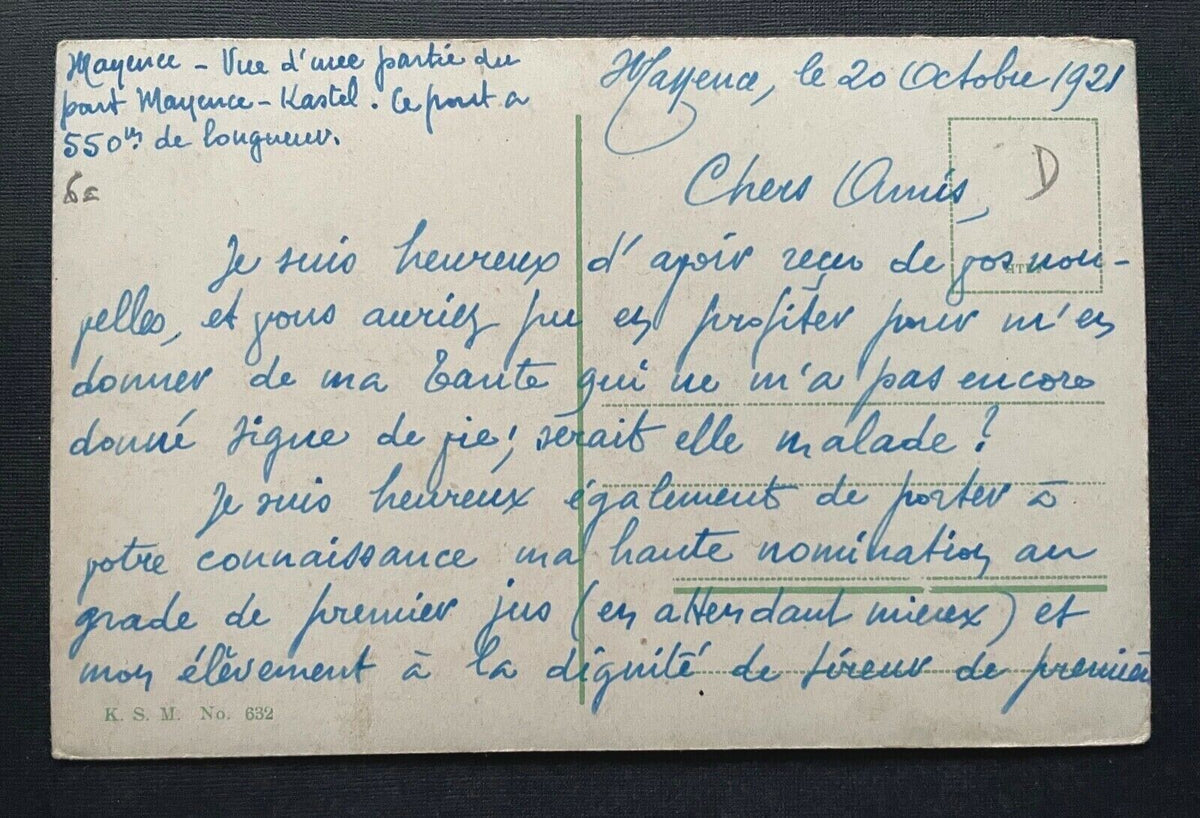 Mayence - Vue d'une partie du
pont Mayence-Kastel. Ce pont a
550m de longueur.
Mayence, le 20 Octobre 1921
D
Chers Amis,
Je suis heureux d'avoir reçu de vos nou-
velles, et vous auriez pu en profiter pour m'en
donner de ma Tante qui ne m'a pas encore
donné signe de vie; serait elle malade?
Je suis heureux également de porter à
votre connaissance ma haute nomination au
grade de premier jus (en attendant mieux) et
mon élèvement à la dignité de tireur de première
K. S. M. No. 632